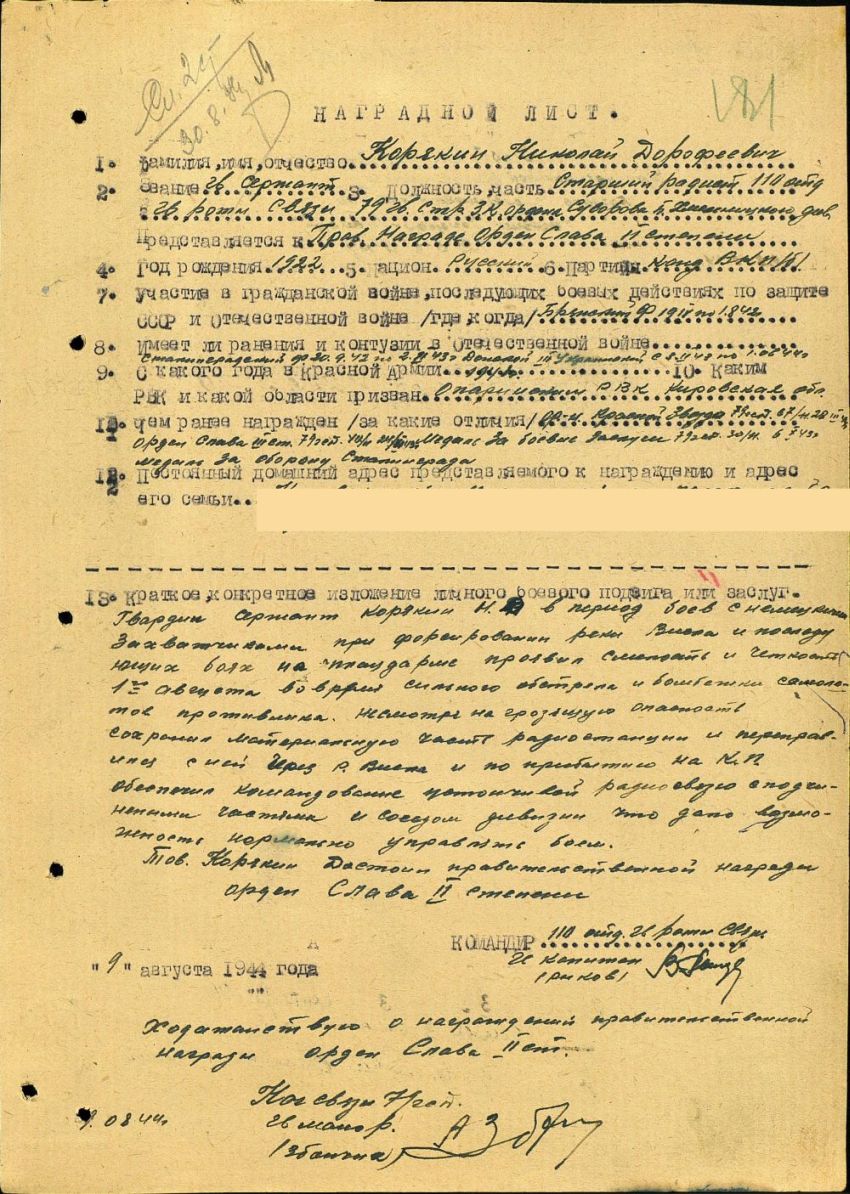 Сл. 2ст
30.8.44
НАГРАДНОЙ ЛИСТ.
1. Фамилия,имя,отчество Корякин Николай Дорофеевич
2. Звание Гв. Сержант 3. Должность,часть Старший радист 110 отд
Гв. роты Связи 79 Гв. Стр. З.К. ордена Суворова б. Хмельницкого див.
Представляется к Прав. Награде Орден Слава II степени
4. Год рождения 1922 5. Национ. Русский 6. Партийн. Канд ВКП/б/
7. Участие в гражданской войне,последующих боевых действиях по защите
СССР и Отечественной войне /где,когда/ Брянский Ф
8. Имеет ли ранения и контузии в Отечественной войне
Сталинградский ф 30.9.42 по Донской III Украинский с по
9. С какого года в Красной Армии 10. Каким
РВК и какой области призван Опаринским РВК Кировская обл.
11. Чем ранее награжден /за какие отличия/ Ор-н Красной Звезда 79гсд. 67/н 28
Орден Слава III ст. 79гсд. Медаль За боевые Заслуги 79гсд. 30/н. 6.7.43г
Медаль За оборону Сталинграда
12. Постоянный домашний адрес представляемого к награждению и адрес
его семьи..
13. Краткое,конкретное изложение личного боевого подвига или заслуг.
Гвардии Сержант Корякин Н. в период боев с немецкими
Захватчиками при форсировании реки Висла и последу
ющих боях на плацдарме проявил смелость и четкость
1го августа во время сильного обстрела и бомбежки самоле-
тов противника. Несмотря на грозящую опасность
сохранил материальную часть радиостанции и переправ-
ился с ней через р. Висла и по прибытию на К.П.
обеспечил командование устойчивой радиосвязью с подчи-
ненными частями и соседом дивизии что дало возмо-
жность нормально управлять боем.
Тов. Корякин Достоин правительственной награды
орден Слава II степени
КОМАНДИР 110 отд. Гв роты Связи
Гв капитан
"9" августа 1944 года
Ходатайствую о награждении правительственной
награды орден Слава II ст.
Нач связи 79гсд.
Гв майор
9.08.44г